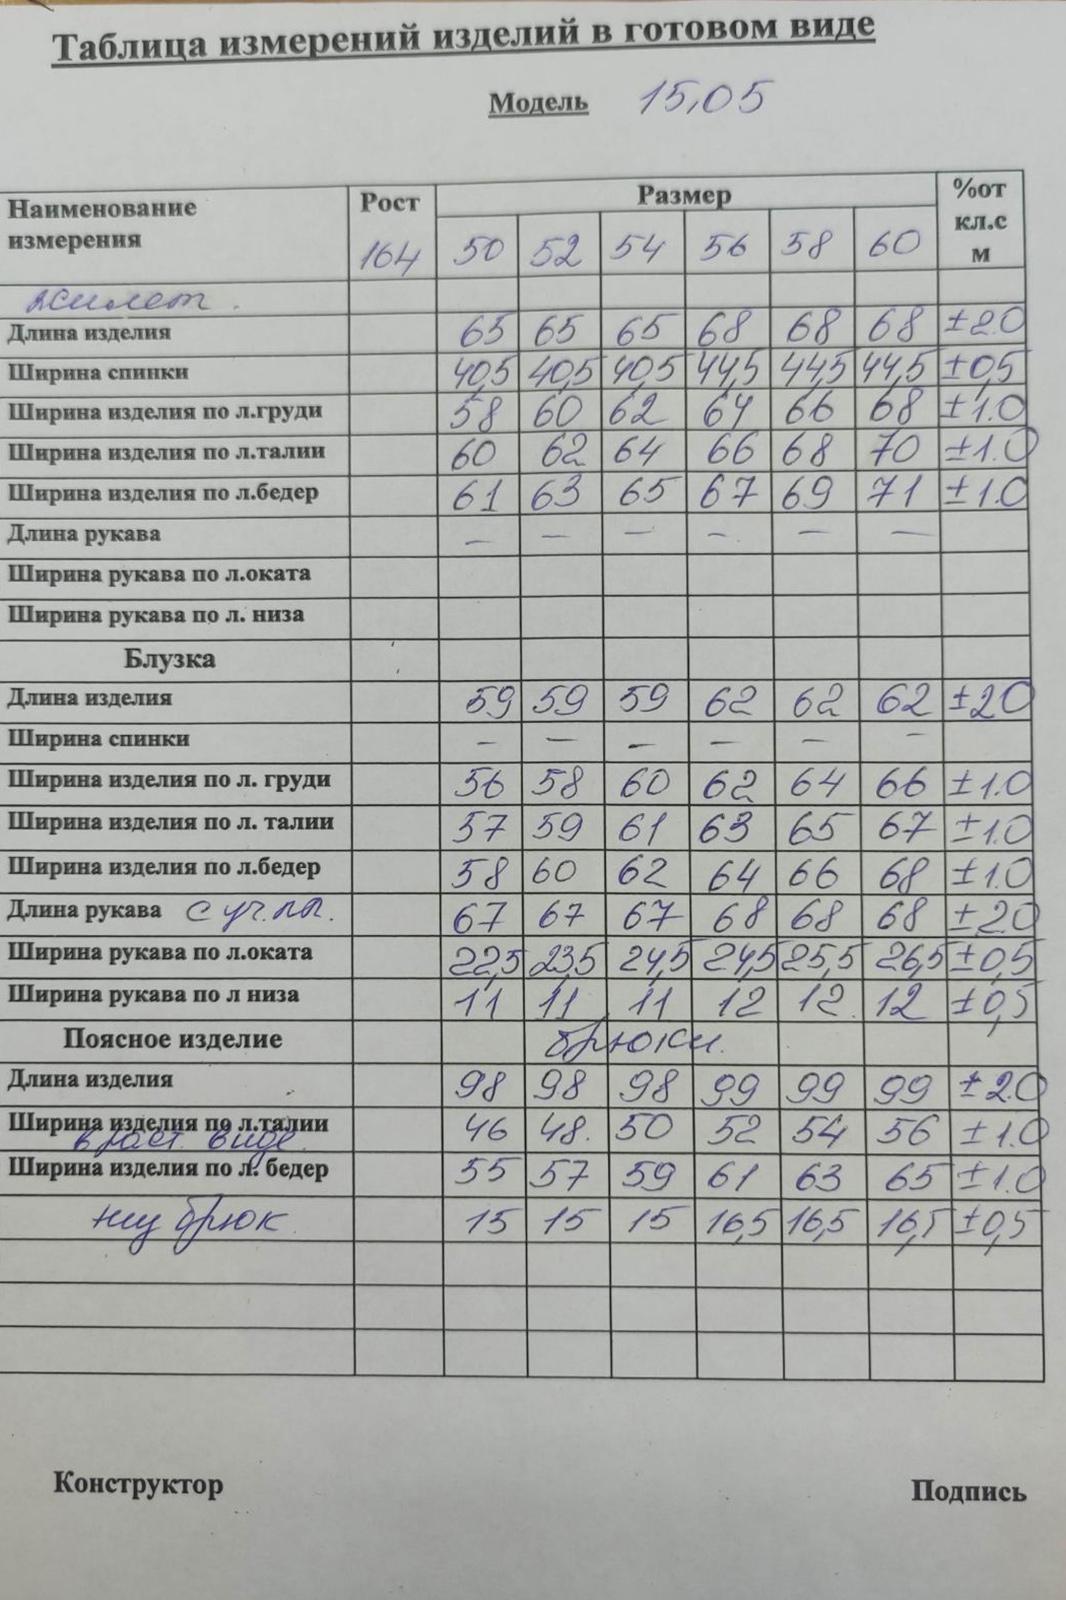 Таблица измерений изделий в готовом виде
Модель 15,05
Наименование измерения Рост 164 Размер %от кл.с м
50 52 54 56 58 60
жилет.
Длина изделия 65 65 65 68 68 68 ±2.0
Ширина спинки 40,5 40,5 40,5 44,5 44,5 44,5 ±0,5
Ширина изделия по л.груди 58 60 62 64 66 68 ±1.0
Ширина изделия по л.талии 60 62 64 66 68 70 ±1.0
Ширина изделия по л.бедер 61 63 65 67 69 71 ±1.0
Длина рукава – – – – – –
Ширина рукава по л.оката
Ширина рукава по л. низа
Блузка
Длина изделия 59 59 59 62 62 62 ±2.0
Ширина спинки – – – – – –
Ширина изделия по л. груди 56 58 60 62 64 66 ±1.0
Ширина изделия по л. талии 57 59 61 63 65 67 ±1.0
Ширина изделия по л.бедер 58 60 62 64 66 68 ±1.0
Длина рукава с уч.пл. 67 67 67 68 68 68 ±2.0
Ширина рукава по л.оката 22,5 23,5 24,5 24,5 25,5 26,5 ±0,5
Ширина рукава по л низа 11 11 11 12 12 12 ±0,5
Поясное изделие брюки.
Длина изделия 98 98 98 99 99 99 ±2.0
Ширина изделия по л.талии 46 48. 50 52 54 56 ±1.0
в раст. виде.
Ширина изделия по л. бедер 55 57 59 61 63 65 ±1.0
низ брюк 15 15 15 16,5 16,5 16,5 ±0,5
Конструктор Подпись